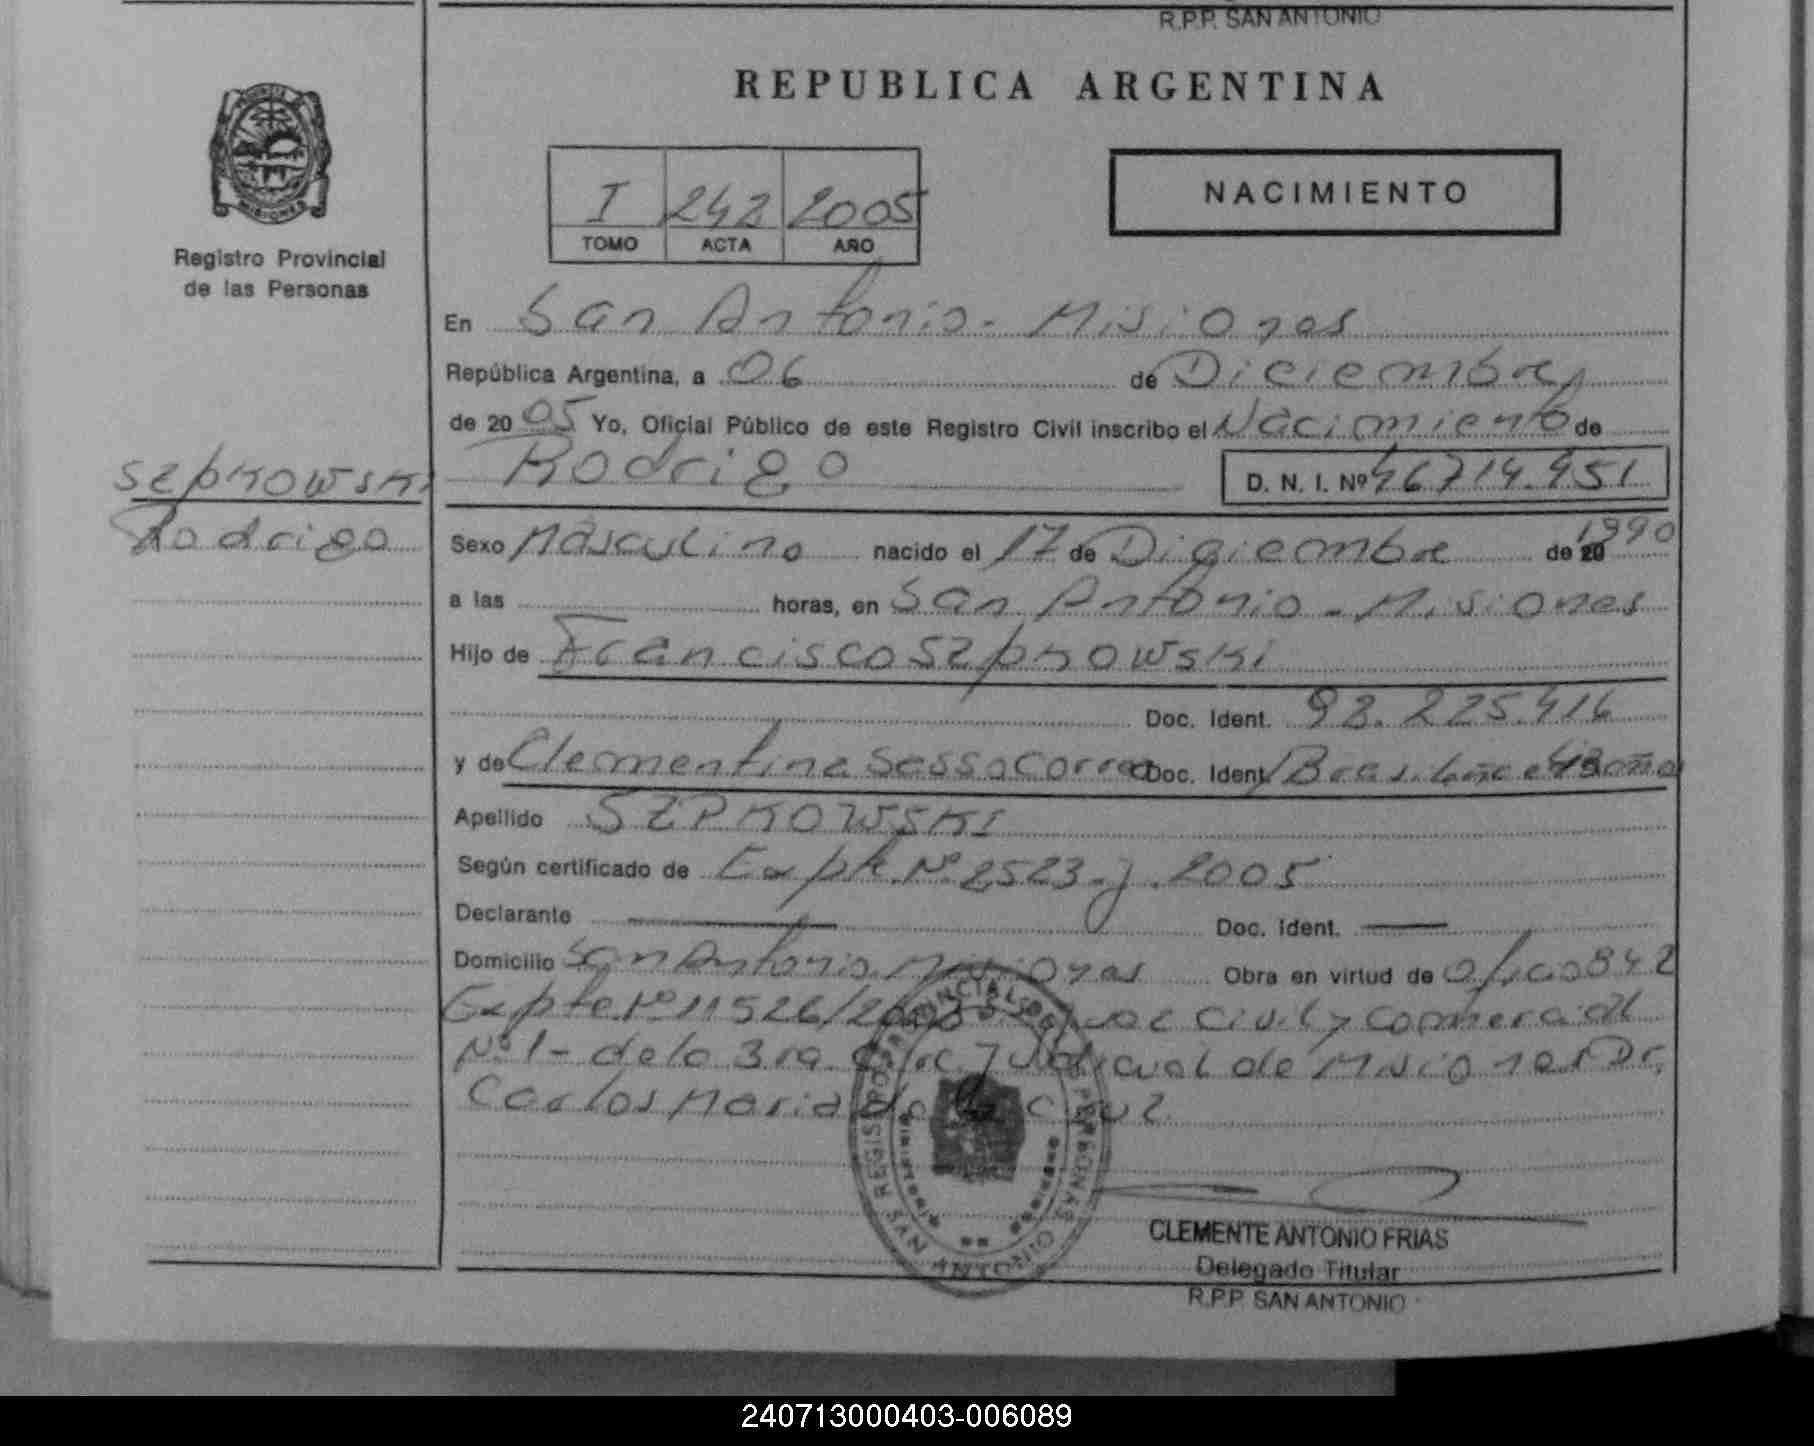 R.P.P. SAN ANTONIO
REPUBLICA ARGENTINA
PROVINCIA DE
MISIONES
Registro Provincial
de las Personas
I 242 2005
TOMO ACTA AÑO
NACIMIENTO
En San Antonio - Misiones
República Argentina, a 06 de Diciembre,
de 20 05 Yo, Oficial Público de este Registro Civil inscribo el Nacimiento de
Rodrigo D. N. I. Nº 46714.451
Szpkowski
Rodrigo
Sexo Masculino nacido el 17 de Diciembre de 20 1990
a las horas, en San Antonio - Misiones
Hijo de Francisco Szpkowski
Doc. Ident. 92.225.416
y de Clementina Sasso Correa Doc. Ident / Brasileña
Apellido SZPKOWSKI
Según certificado de Expte. Nº 2523-J-2005
Declarante Doc. Ident.
Domicilio San Antonio Misiones Obra en virtud de Oficio 842
Expte Nº 11526/ Juez Civil y Comercial
Nº 1 - de la 3ra. Circ. Judicial de Misiones Dr.
Carlos Maria de la Cruz
REGISTRO PROVINCIAL DE LAS PERSONAS
SAN ANTONIO
CLEMENTE ANTONIO FRIAS
Delegado Titular
R.P.P. SAN ANTONIO
240713000403-006089